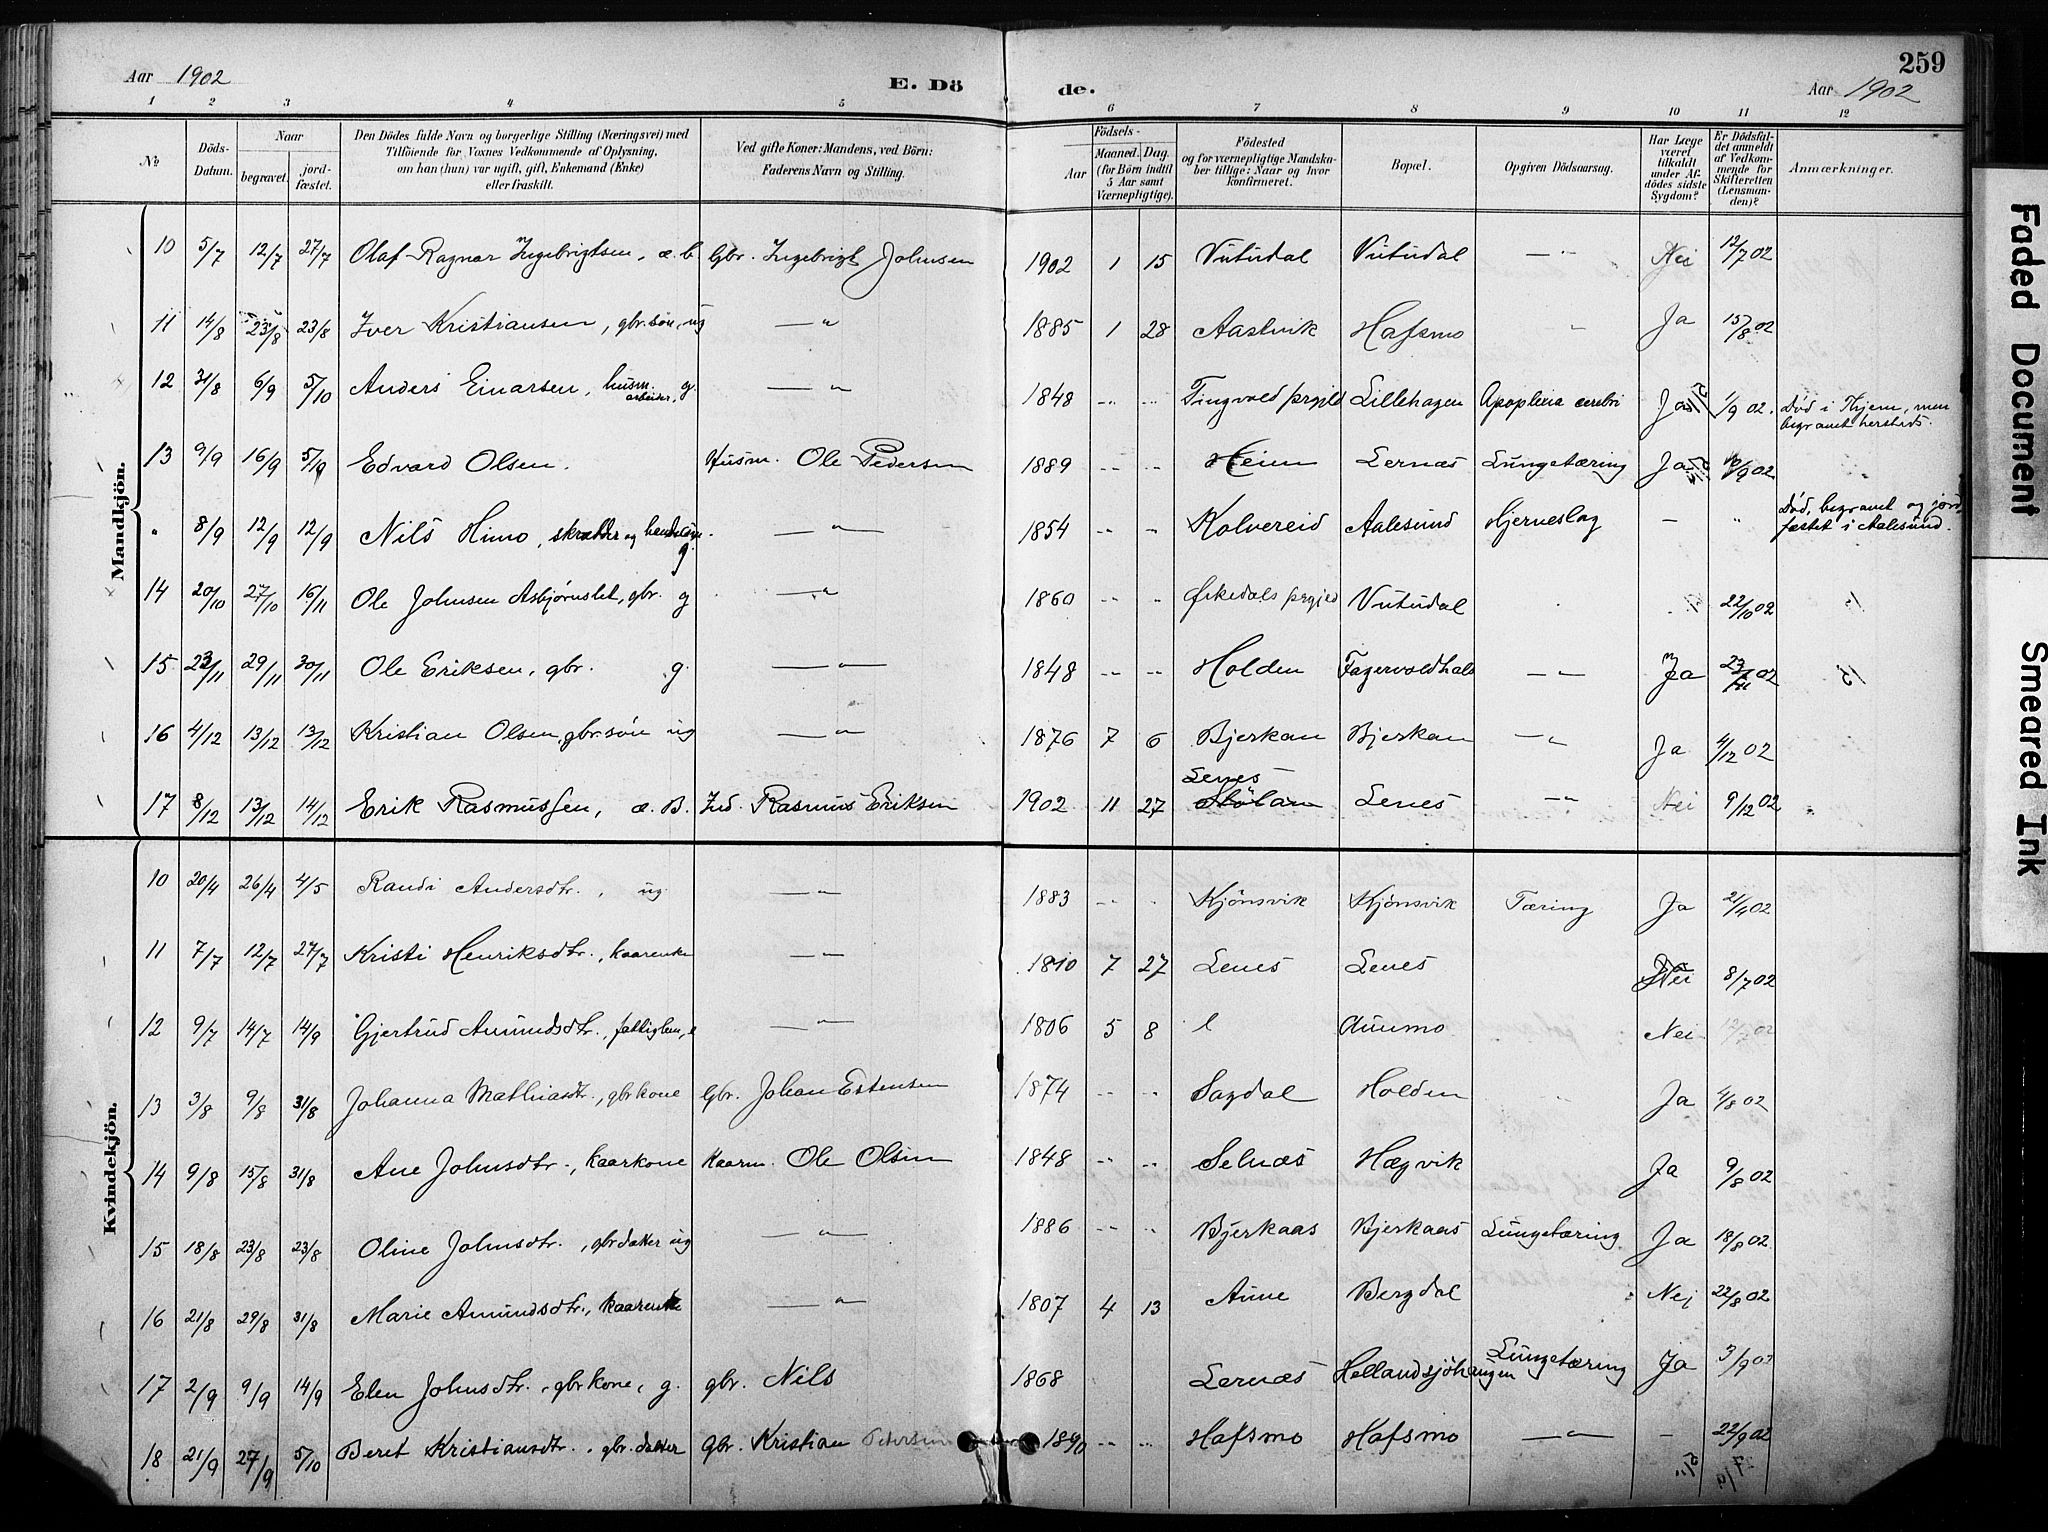 Aar 1902 E. Dö de. Aar 1902 259
1 2 3 4 5 6 7 8 9 10 11 12
No
Döds-Datum.
Naar
begravet.
jord-fæstet.
Den Dödes fulde Navn og borgerlige Stilling (Næringsvei) med
Tilföiende for Voxnes Vedkommende af Oplysning,
om han (hun) var ugift, gift, Enkemand (Enke)
eller fraskilt.
Ved gifte Koner: Mandens, ved Börn:
Faderens Navn og Stilling.
Födsels-
Aar
Maaned. Dag.
(for Börn indtil
5 Aar samt
Værnepligtige).
Födested
og for værnepligtige Mandska-
ber tillige: Naar og hvor
konfirmeret.
Bopæl.
Opgiven Dödsaarsag.
Har Læge
været
tilkaldt
under Af-
dödes sidste
Sygdom?
Er Dödsfal-
det anmeldt
af Vedkom-
mende for
Skifteretten
(Lensman-
den)?
Anmærkninger.
Mandkjön.
10 5/7 12/7 27/7 Olaf Ragnar Ingebrigtsen, æ. b. Gbr. Ingebrigt Johnsen 1902 1 15 Vutudal Vutudal —"— Nei 12/7 02
11 14/8 23/8 23/8 Iver Kristiansen, gbr.søn, ug —"— 1885 1 28 Aastvik Hafsmo " Ja 15/8 02
12 31/8 6/9 5/10 Anders Einarsen, husm. arbeider, g. —"— 1848 -- -- Tingvold prgjld Lillehagen Apoplexia cerebri Ja 1/9 02. Død i Hjem, men
begravet hersteds.
13 9/9 16/9 5/10 Edvard Olsen. Husm. Ole Pedersen 1889 -- -- Heim Lernæs Lungetæring Ja 10/9 02
" 8/9 12/9 12/9 Nils Himo, skrædder og g. —"— 1854 -- -- Kolvereid Aalesund Hjerneslag — " Død, begravet og jord
fæstet i Aalesund.
14 20/10 27/10 16/11 Ole Johnsen Asbjørnslet, gbr. g —"— 1860 -- -- Ørkedals prgjld Vutudal 22/10 02
15 23/11 29/11 30/11 Ole Eriksen, gbr. g. —"— 1848 -- -- Holden Fagervoldhals —"— Ja 23/11 02
16 4/12 13/12 13/12 Kristian Olsen, gbr.søn ug —"— 1876 7 6 Bjerkan Bjerkan —"— Ja 4/12 02
17 8/12 13/12 14/12 Erik Rasmussen, æ. B. Ind. Rasmus Eriksen 1902 11 27 Lenes Lenes —"— Nei 9/12 02
Kvindekjön.
10 20/4 26/4 4/5 Randi Andersdtr., ug. —"— 1883 -- -- Kjönsvik Kjönsvik Tæring Ja 21/4 02
11 7/7 12/7 27/7 Kristi Henriksdtr., kaarenke —"— 1810 7 27 Lenes Lenes Nei 8/7 02
12 9/7 14/7 14/9 Gjertrud Amundsdtr., fattiglem, e —"— 1806 5 8 Nei 12/7 02
13 3/8 9/8 31/8 Johanna Mathiasdtr., gbrkone Gbr. Johan Estensen 1874 -- -- Sagdal Holden " Ja 4/8 02
14 9/8 15/8 31/8 Ane Johnsdtr., kaarkone Kaarm. Ole Olsen 1848 -- -- Selnæs Hægvik Ja 9/8 02
15 18/8 23/8 23/8 Oline Johnsdtr., gbrdatter ug —"— 1886 -- -- Bjerkaas Bjerkaas Lungetæring Ja 18/8 02
16 21/8 29/8 31/8 Marie Amundsdtr., kaarenke —"— 1807 4 13 Aune Bergdal Nej 22/8 02
17 2/9 9/9 14/9 Elen Johnsdtr., gbrkone, g. gbr. Nils 1868 Lernæs Hellandsjöhaugen Lungetæring Ja 3/9 02
18 21/9 27/9 5/10 Beret Kristiansdtr., gbr.datter Gbr. Kristian Petersen 1890 -- -- Hafsmo Hafsmo —"— — 22/9 02
Faded Document
Smeared Ink